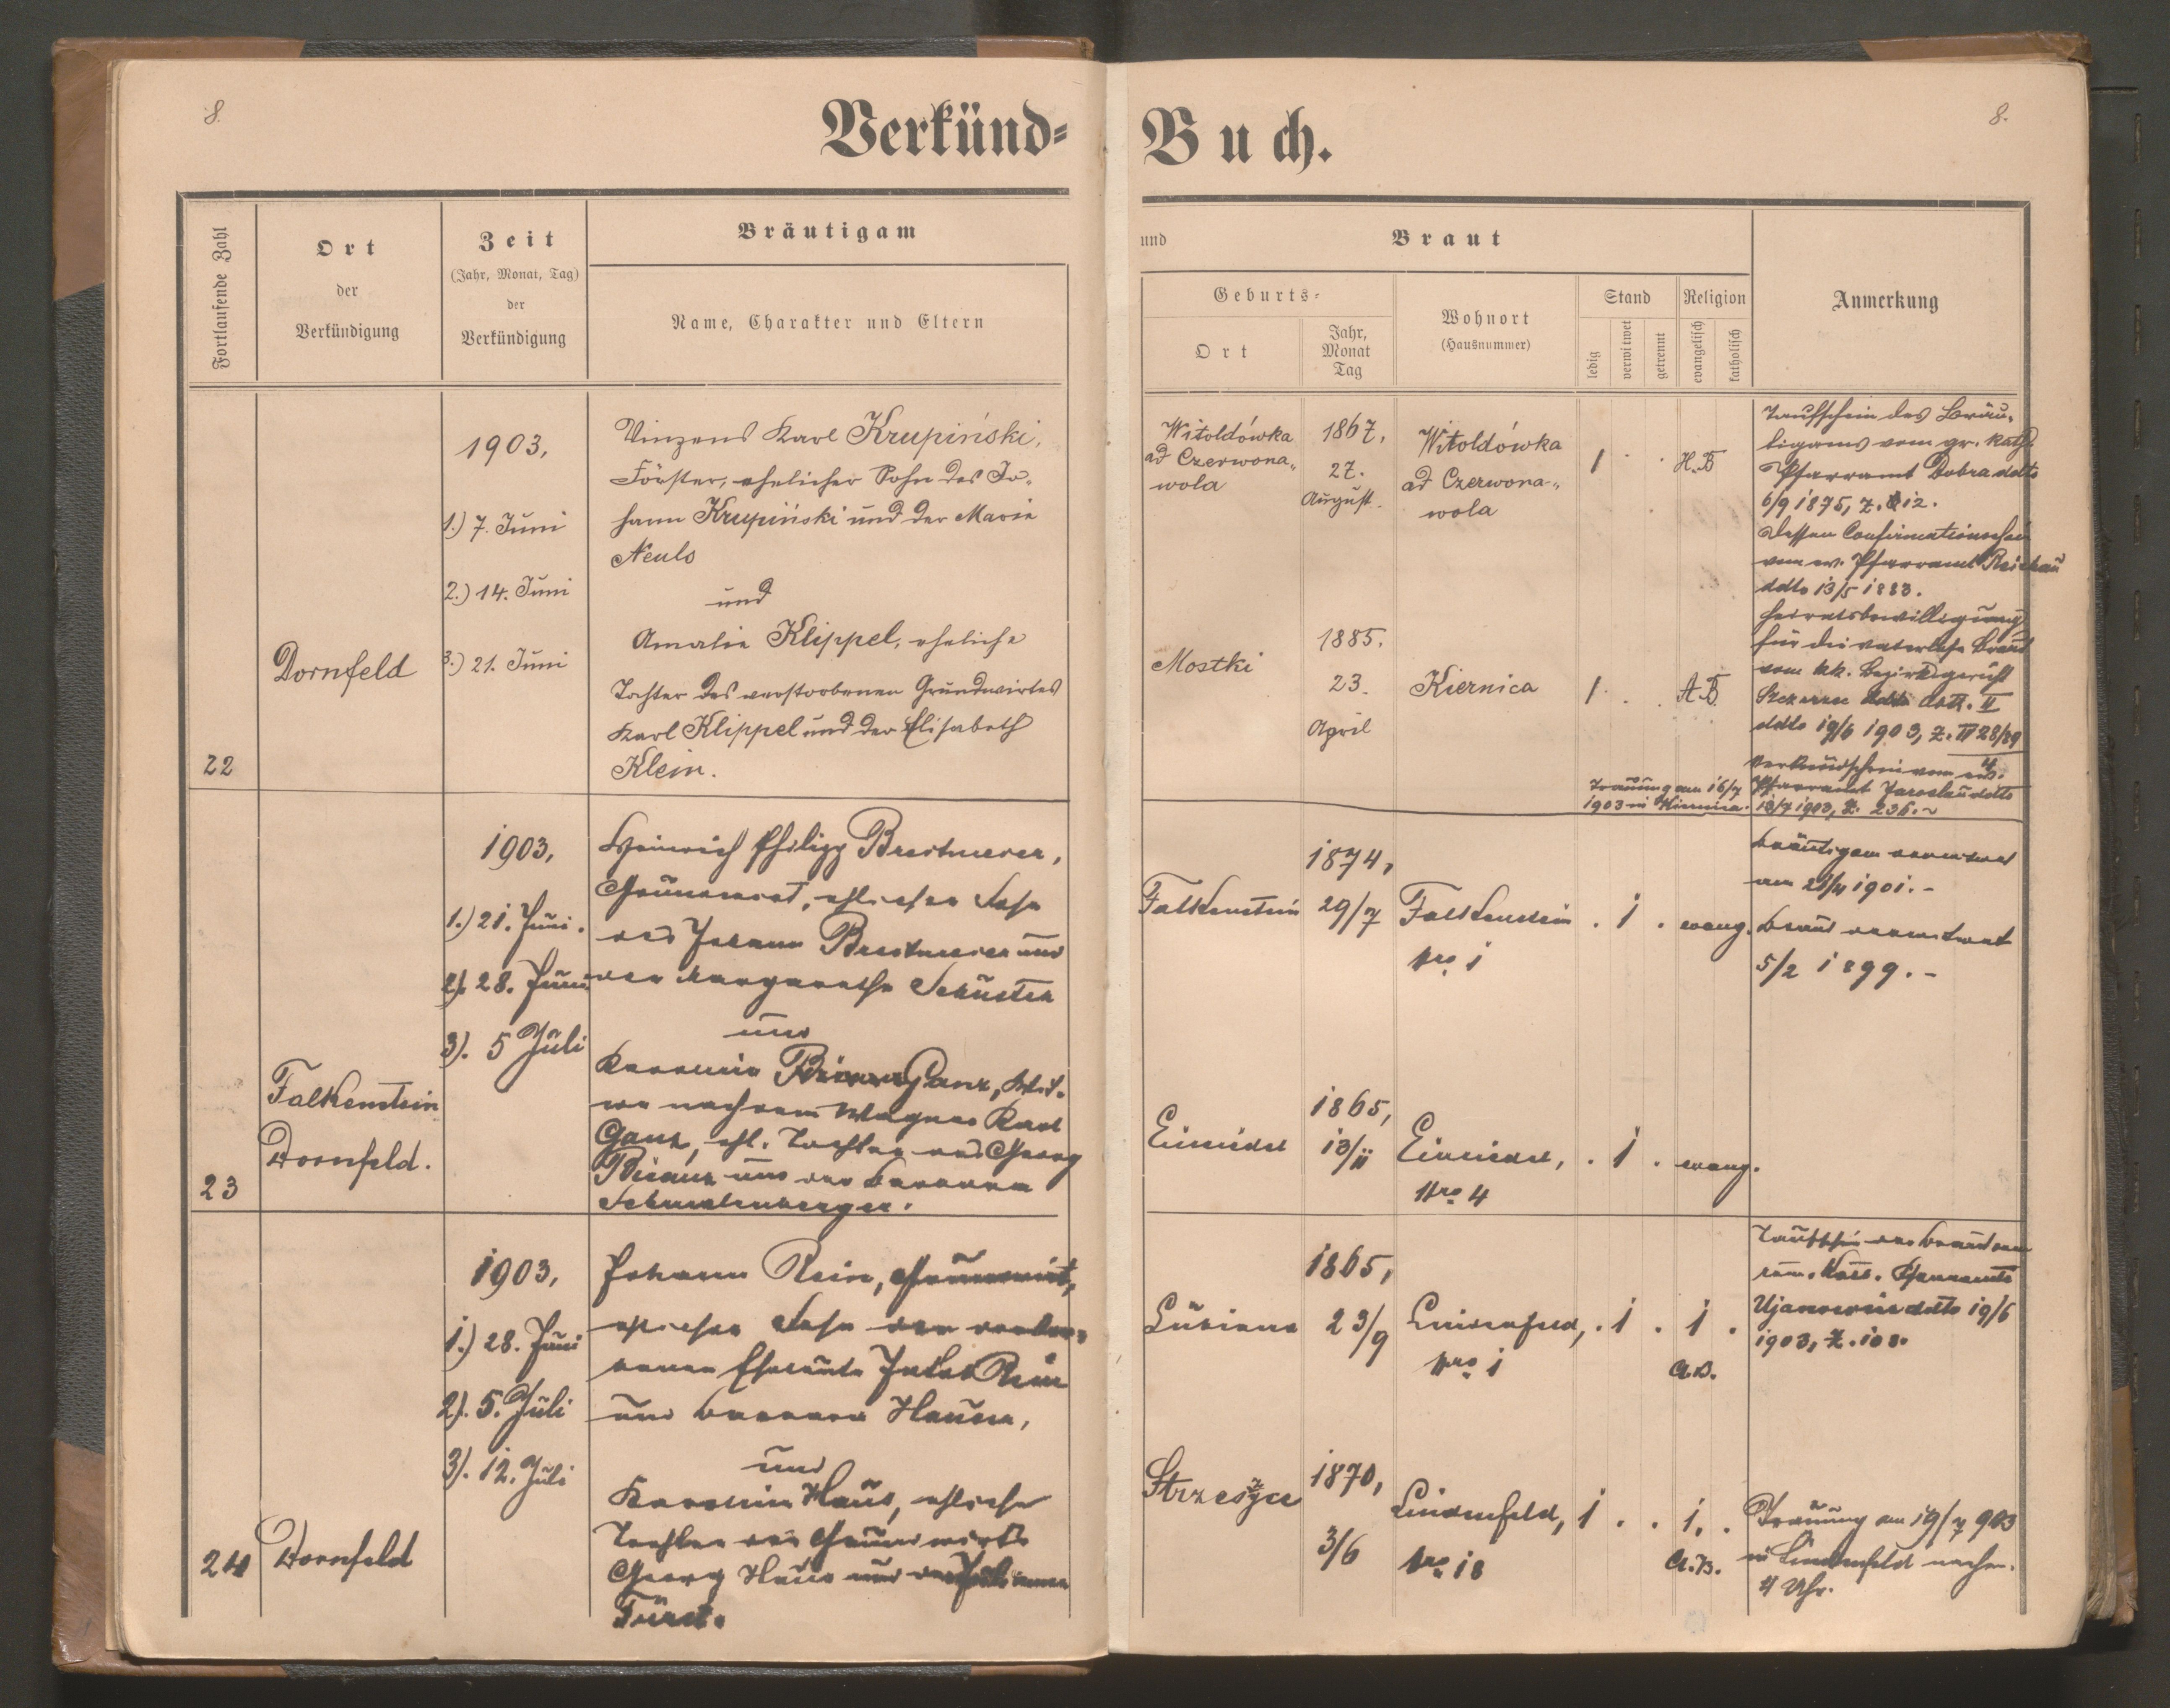 8.
Verkünd=
Fortlaufende Zahl
Ort
der
Verkündigung
Zeit
(Jahr, Monat, Tag)
der
Verkündigung
Bräutigam
Name, Charakter und Eltern
22
Dornfeld
1903,
1.) 7. Juni
2.) 14. Juni
3.) 21. Juni
Vinzens Karl Krupiński,
Förster, ehelicher Sohn des Jo-
hann Krupiński und der Marie
Neuls
und
Amalie Klippel, eheliche
Tochter des verstorbenen Grundwirtes
Karl Klippel und der Elisabeth
Klein.
23
Falkenstein
Dornfeld.
1903,
1.) 21. Juni.
2). 28. Juni
3). 5 Juli
Heinrich Philipp Breitmeier,
Grundwirt, ehlicher Sohn
des Johann Breitmeier und
der Margarethe Schuster
und
Karolin Ganz, Wit-
we nach dem Wagner Karl
Ganz, ehl. Tochter des Georg
Bisanz und der Barbara
Schmalenberger.
24
Dornfeld
1903,
1.) 28. Juni
2). 5. Juli
3). 12. Juli
Johann Rein, Grundwirt,
ehlicher Sohn der verstor-
benen Eheleute Jakob Rein
und Barbara Hauser,
und
Karolin Haus, ehliche
Tochter des Grundwirts
Georg Haus und der
Fürst.
8.
Buch.
und
Braut
Geburts=
Ort
Jahr,
Monat
Tag
Wohnort
(Hausnummer)
Stand
ledig
verwitwet
getrennt
Religion
evangelisch
katholisch
Anmerkung
Witoldówka
ad Czerwona-
wola
1867,
27.
August.
Witoldówka
ad Czerwona-
wola
1 . . H.B
Taufschein des Bräu-
tigams vom gr. kath.
Pfarramt Dobra ddto
6/9 1875, Z. 12.
Dessen Confirmationsschein
vom ev. Pfarramt Reichau
ddto 13/5 1883.
Heiratsbewilligung
für die vaterlose Braut
vom kk. Bezirksgericht
Szczerzec Abt. II
ddto 19/6 1903, Z. IV 28/89
4
Verkündschein vom ev.
Pfarramt Jaroslau ddto
13/7 1903, Z. 236.
Mostki
1885.
23.
April
Kiernica
1 . . A.B
Trauung am 16/7
1903 in Kiernica.
Falkenstein
1874,
29/7
Falkenstein
Nro 1
. 1 . evang.
Bräutigam verwitwet
am 21/4 1901. -
Braut verwitwet
5/2 1899. -
Einsiedel
1865,
13/11
Einsiedel,
Nro 4
. 1 . evang.
1865,
23/9
Lindenfeld,
Nro 1
. 1 . 1 .
A.B.
Taufschein der Braut vom
röm. kath. Pfarramte
Ujanowice ddto 19/6
1903, Z. 108.
Strzeszyce
1870,
3/6
Lindenfeld,
Nro 18
1 . . 1. .
A.B.
Trauung am 19/7 903
in Lindenfeld nachm.
4 Uhr.